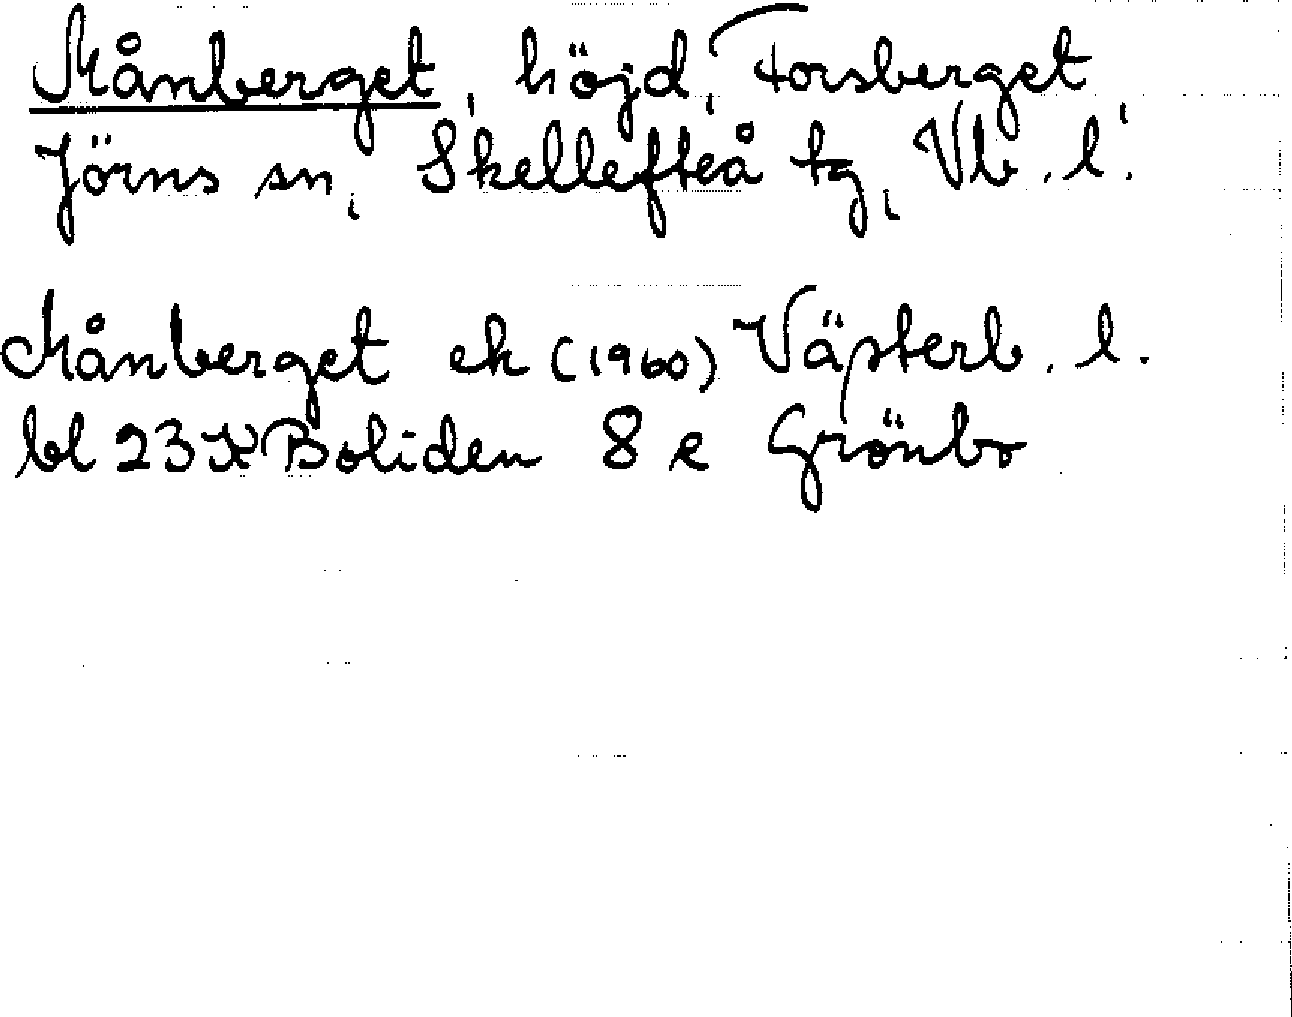 Månberget, höjd, Forsberget,
Jörns sn, Skellefteå tg, Vb. l.
Månberget ek (1960) Västerb. l.
bl 23 K Boliden 8 e Grönbo